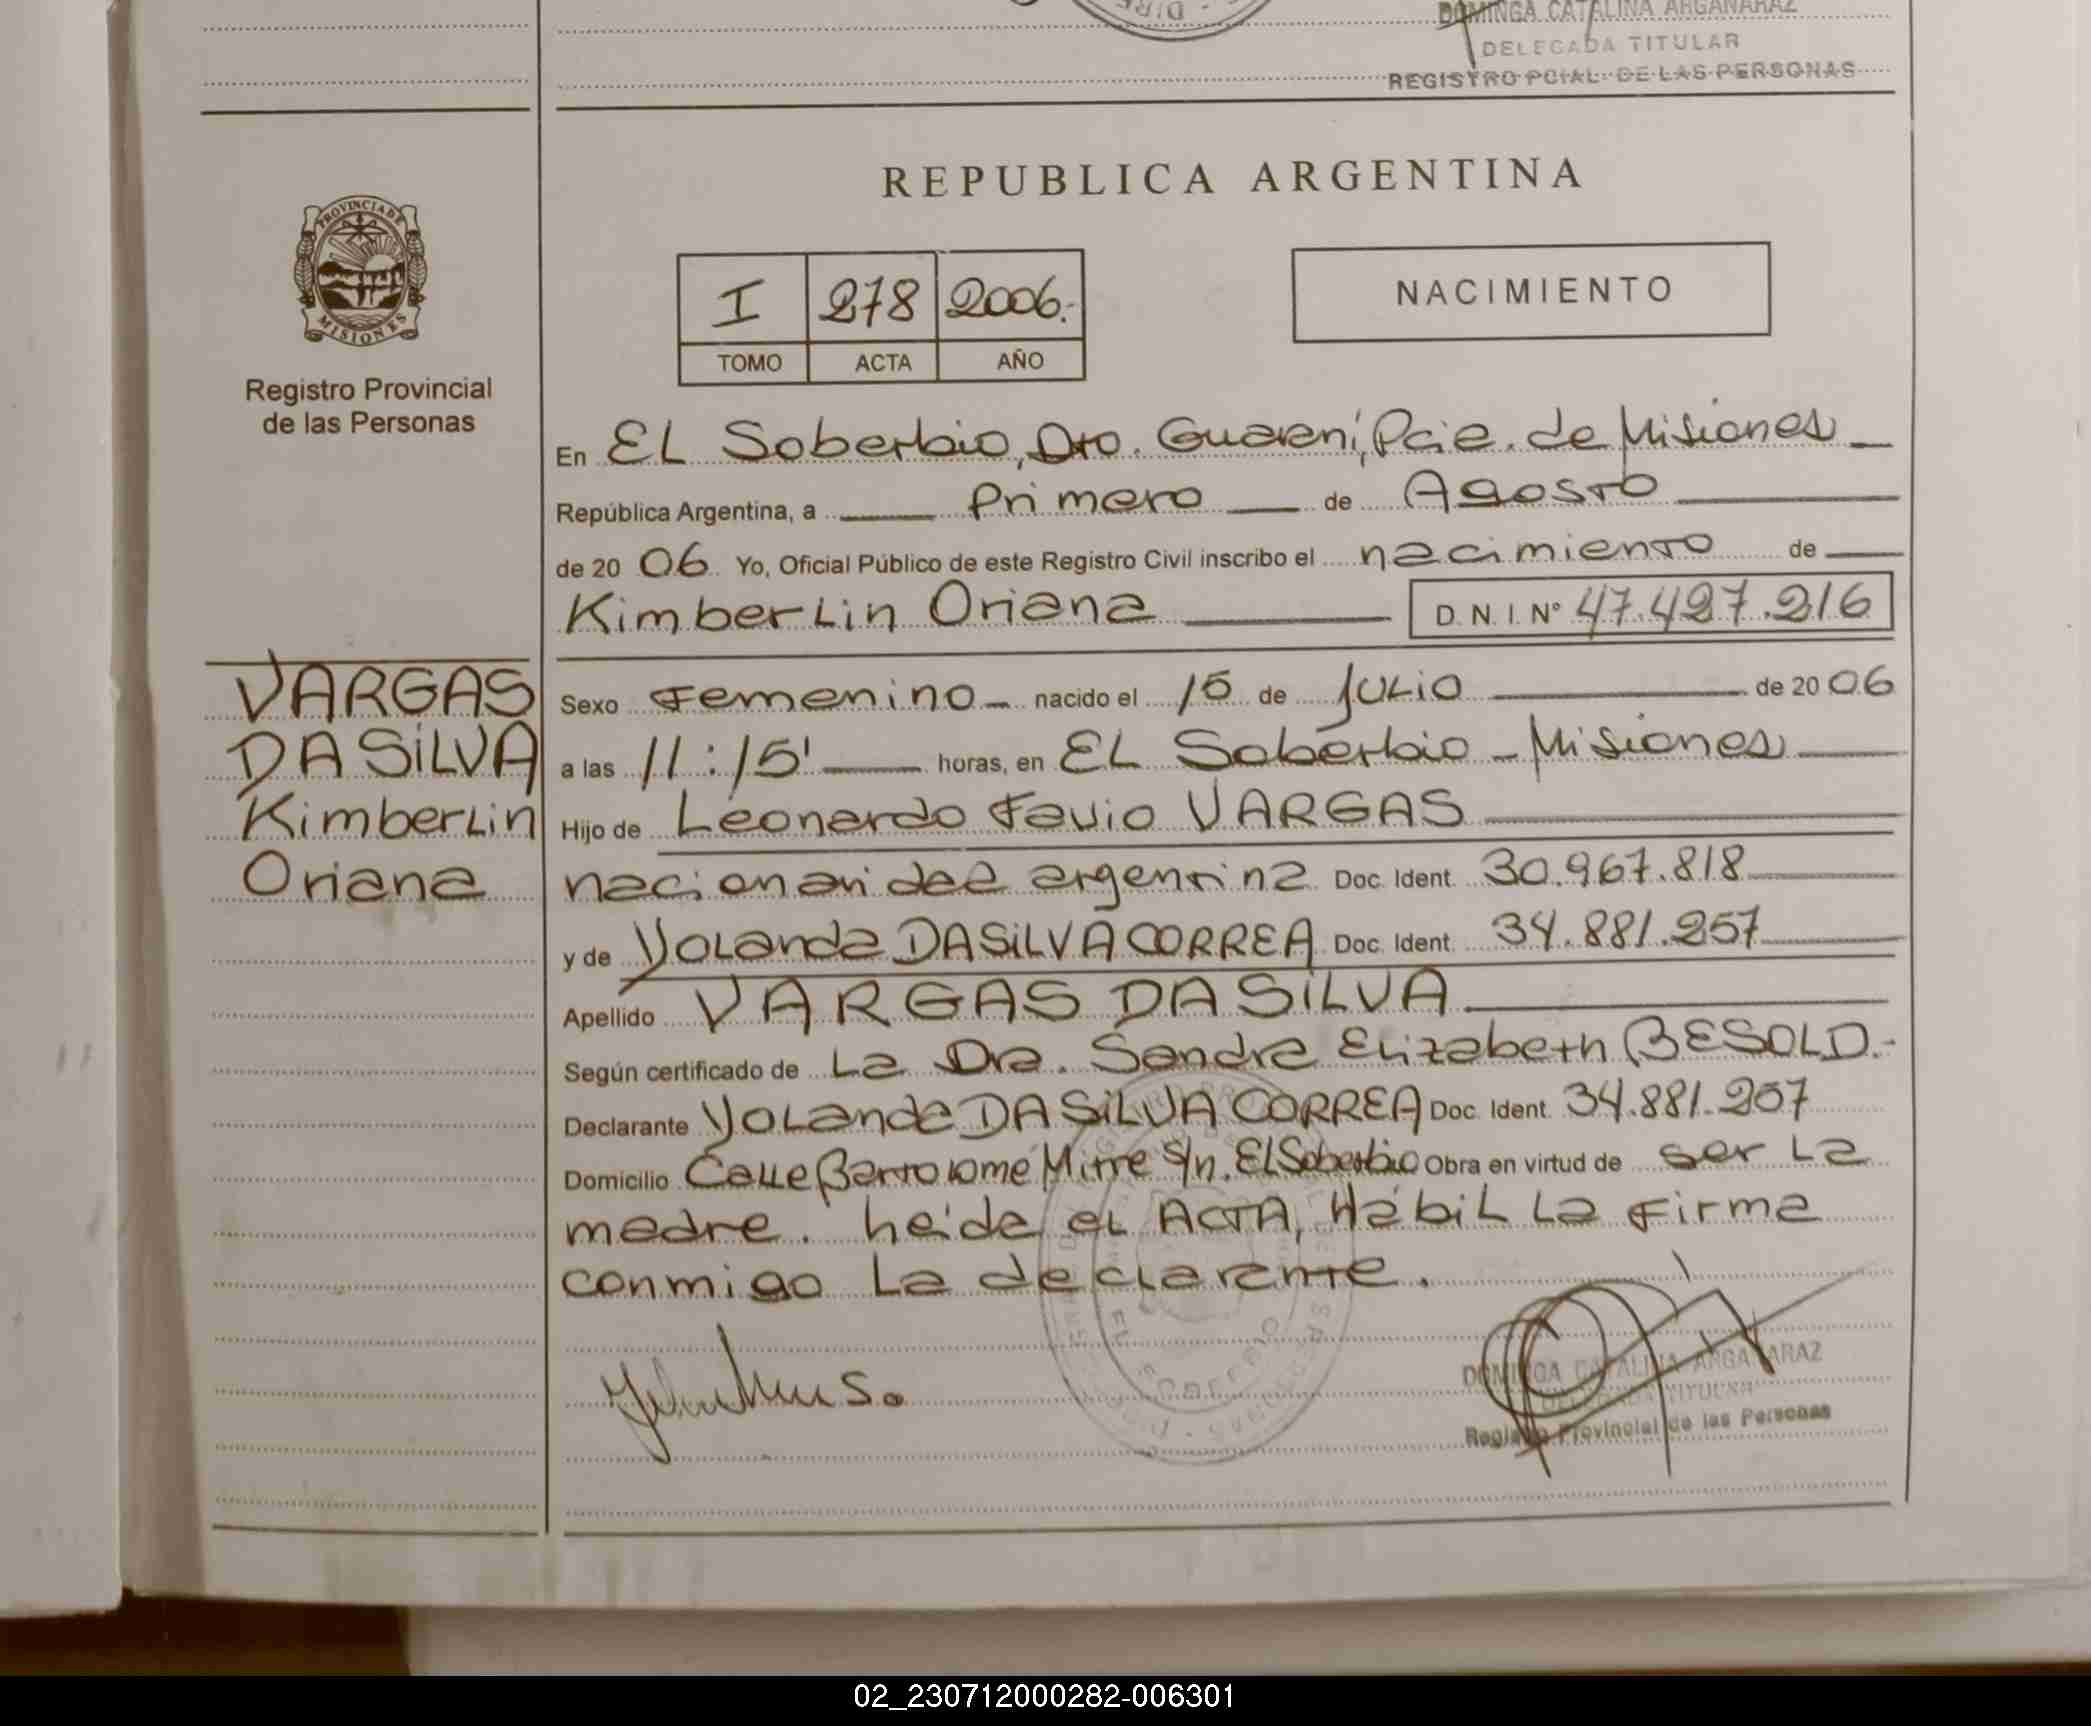 DOMINGA CATALINA ARGAÑARAZ
DELEGADA TITULAR
REGISTRO PCIAL. DE LAS PERSONAS
REPUBLICA ARGENTINA
PROVINCIA DE
MISIONES
Registro Provincial
de las Personas
I 278 2006.-
TOMO ACTA AÑO
NACIMIENTO
En EL Soberbio, Dto. Guaraní, Pcia. de Misiones
República Argentina, a Primero de Agosto
de 20 06 Yo, Oficial Público de este Registro Civil inscribo el nacimiento de
Kimberlin Oriana D.N.I. Nº 47.427.216
VARGAS
DA SILVA
Kimberlin
Oriana
Sexo Femenino nacido el 15 de Julio de 20 06
a las 11:15' horas, en EL Soberbio - Misiones
Hijo de Leonardo Favio VARGAS
nacionalidad argentina Doc. Ident. 30.967.818
y de Yolanda DA SILVA CORREA Doc. Ident. 34.881.257
Apellido VARGAS DA SILVA
Según certificado de La Dra. Sandra Elizabeth BESOLD.-
Declarante Yolanda DA SILVA CORREA Doc. Ident. 34.881.257
Domicilio Calle Bartolomé Mitre S/n. El Soberbio Obra en virtud de ser La
madre. heida el ACTA, Hábil La firma
conmigo La declarante.
EL SOBERBIO
DOMINGA CATALINA ARGAÑARAZ
DELEGADA TITULAR
Registro Provincial de las Personas
02_230712000282-006301